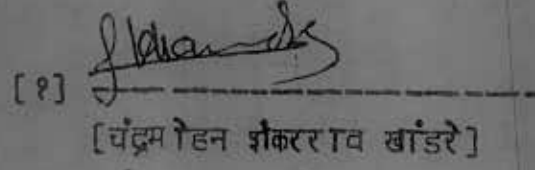 [१]
[चंद्रमोहन शंकरराव खांडरे]